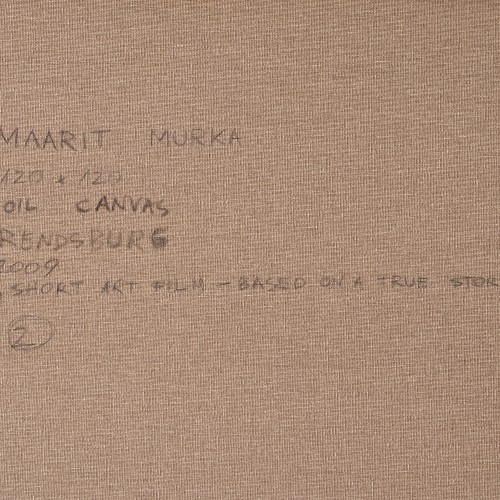 MAARIT MURKA
120 x 120
OIL CANVAS
RENDSBURG
2009
"SHORT ART FILM – BASED ON A TRUE STOR
2